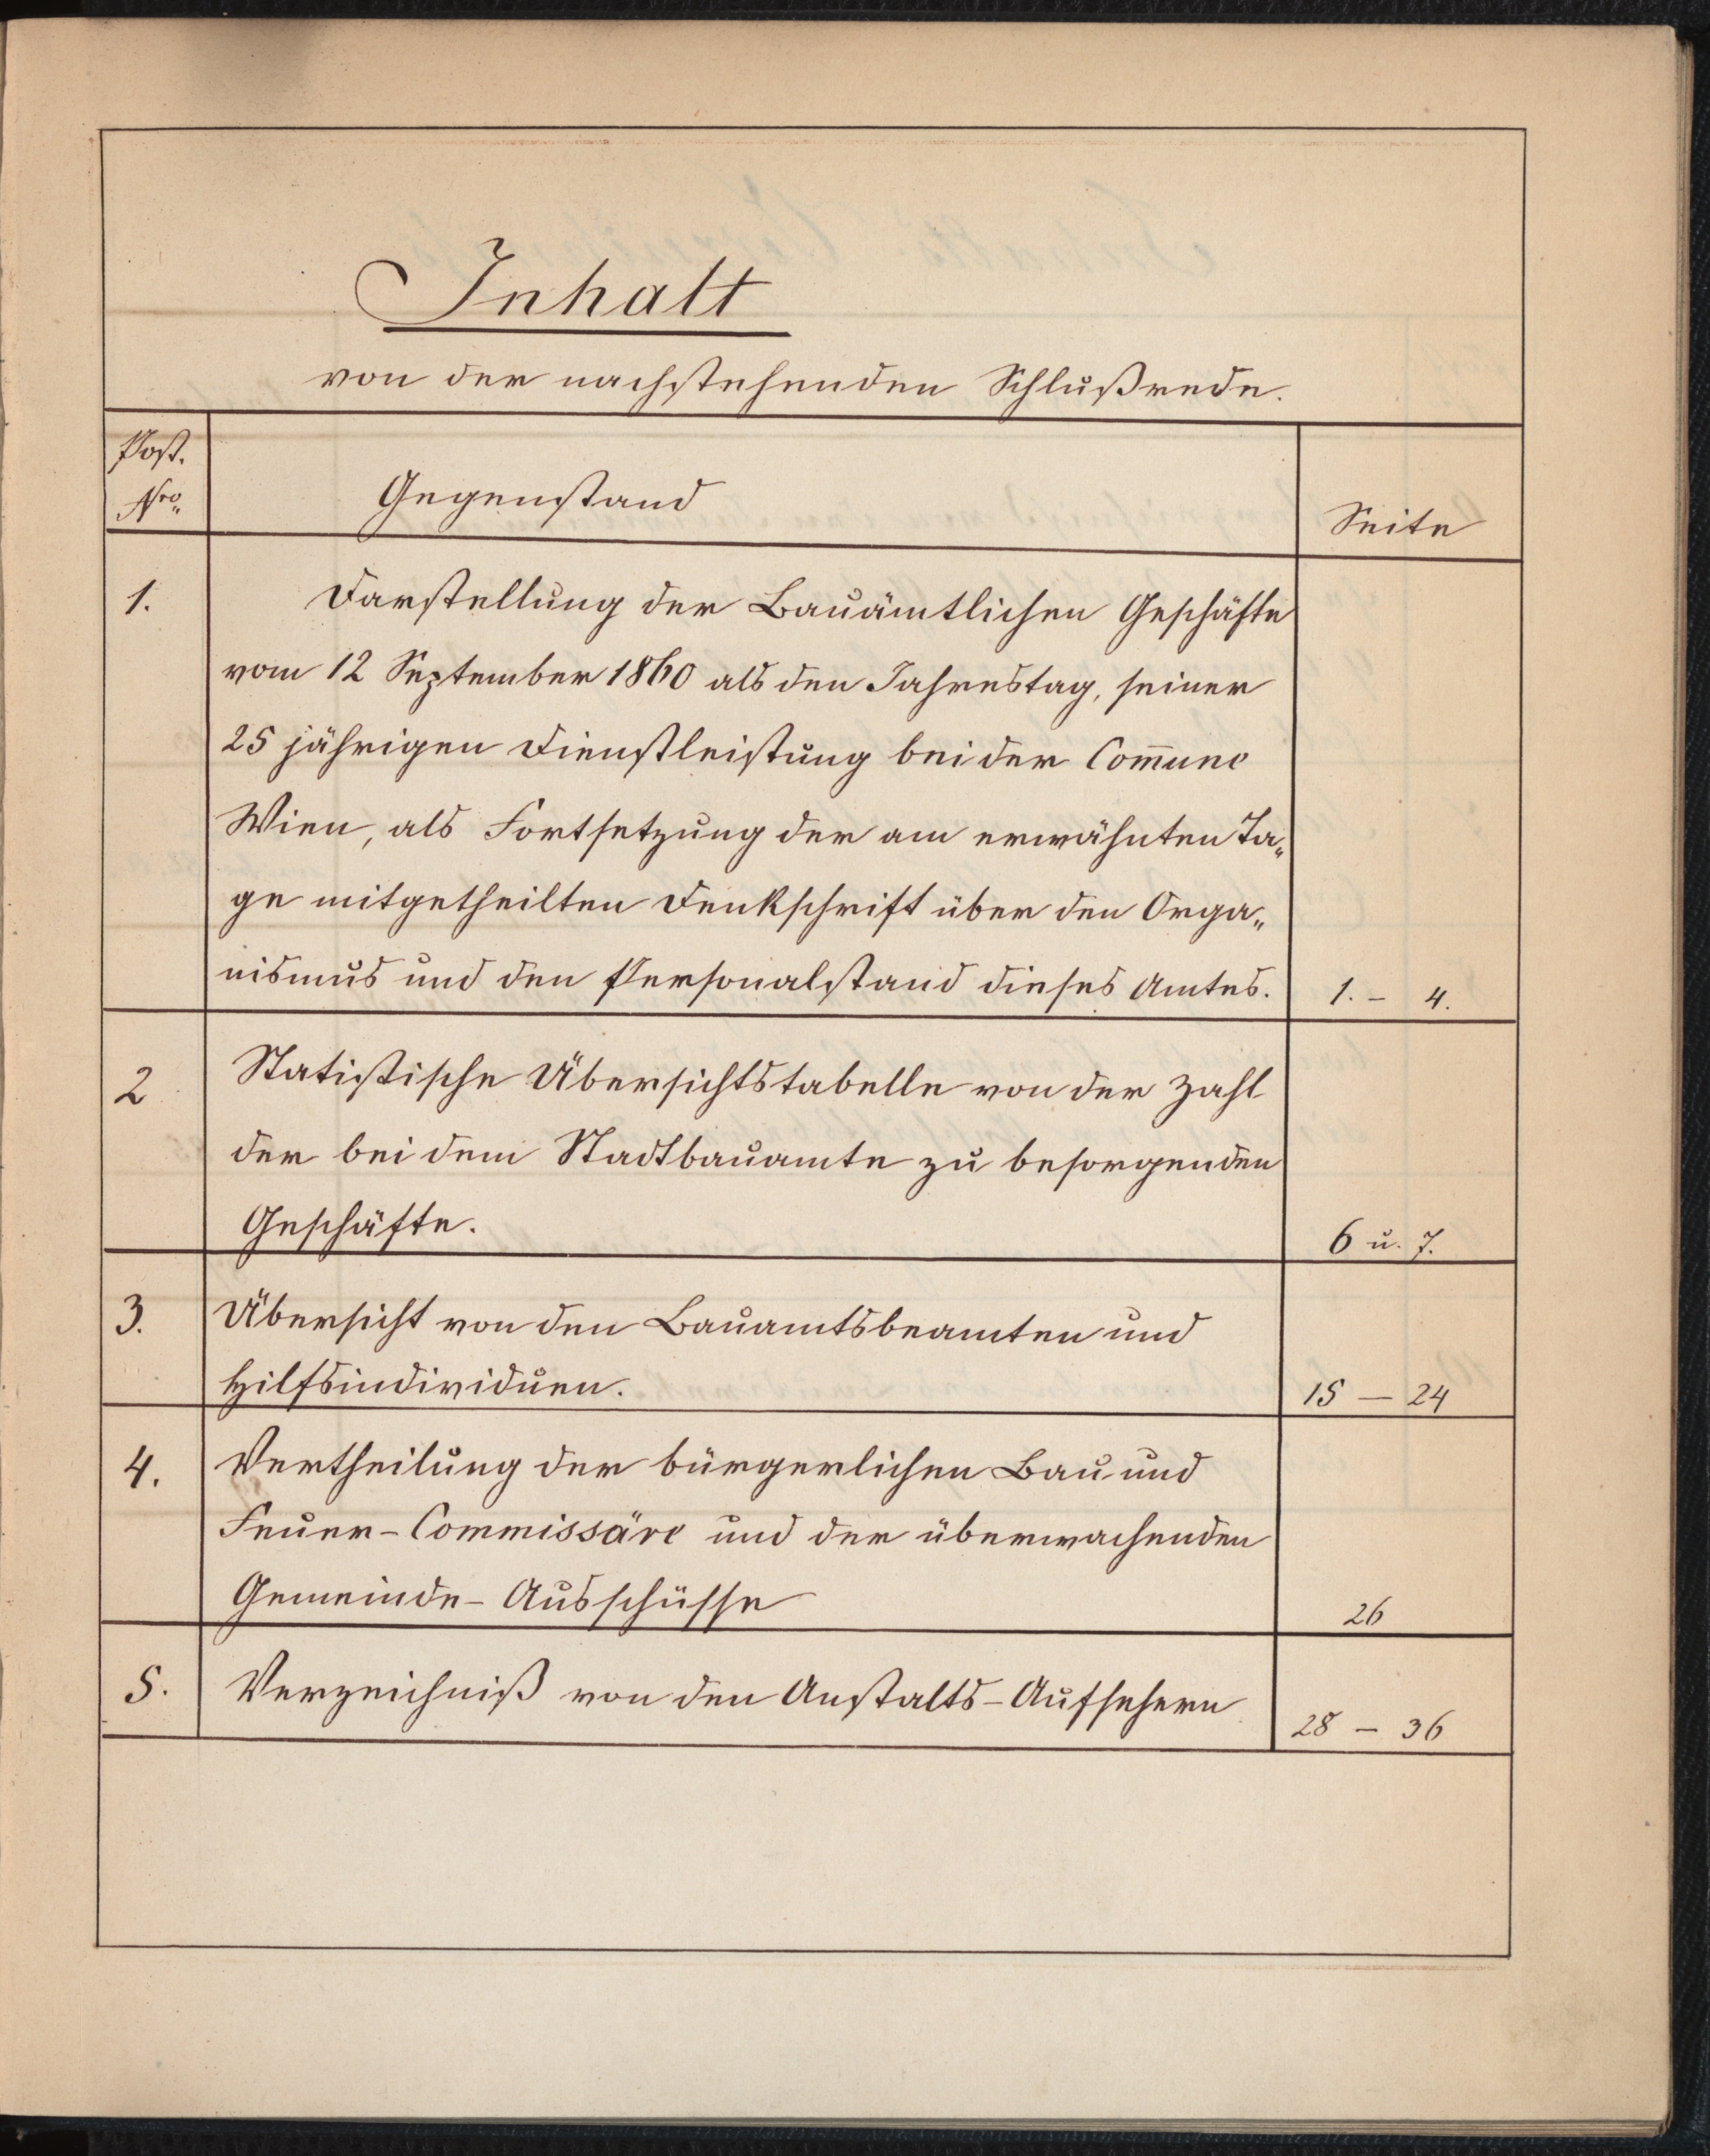 Inhalt
von der nachstehenden Schlußrede.
Post.
Nro.
Gegenstand
Seite
1.
Darstellung der Bauämtlichen Geschäfte
vom 12 September 1860 als den Jahrestag, seiner
25 jährigen Dienstleistung bei der Com̄une
Wien, als Fortsetzung der am erwähnten Ta„
ge mitgetheilten Denkschrift über den Orga„
nismus und den Personalstand dieses Amtes.
1. – 4.
2
Statistische Übersichtstabelle von der Zahl
der bei dem Stadtbauamte zu besorgenden
Geschäfte.
6 u. 7.
3.
Übersicht von den Bauamtsbeamten und
Hilfsindividuen.
15 — 24
4.
Vertheilung der bürgerlichen Bau und
Feuer-Commissäre und der überwachenden
Gemeinde-Ausschüsse
26
5.
Verzeichniß von den Anstalts-Aufsehern
28 – 36